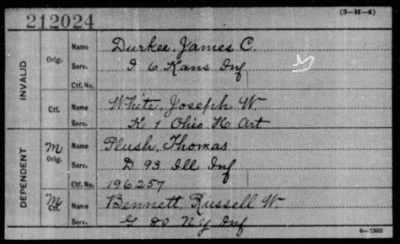 212024
(3-H-4)
INVALID
Orig.
Name Durkee, James C.
Serv. I 6 Kans Inf
Ctf. No.
Ctf.
Name White, Joseph W.
Serv. K 1 Ohio H Art
DEPENDENT
M
Orig.
Name Plush, Thomas
Serv. D 93 Ill Inf
Ctf. No. 196257
M
Ctf.
Name Bennett, Russell W.
Serv. G 80 NY Inf